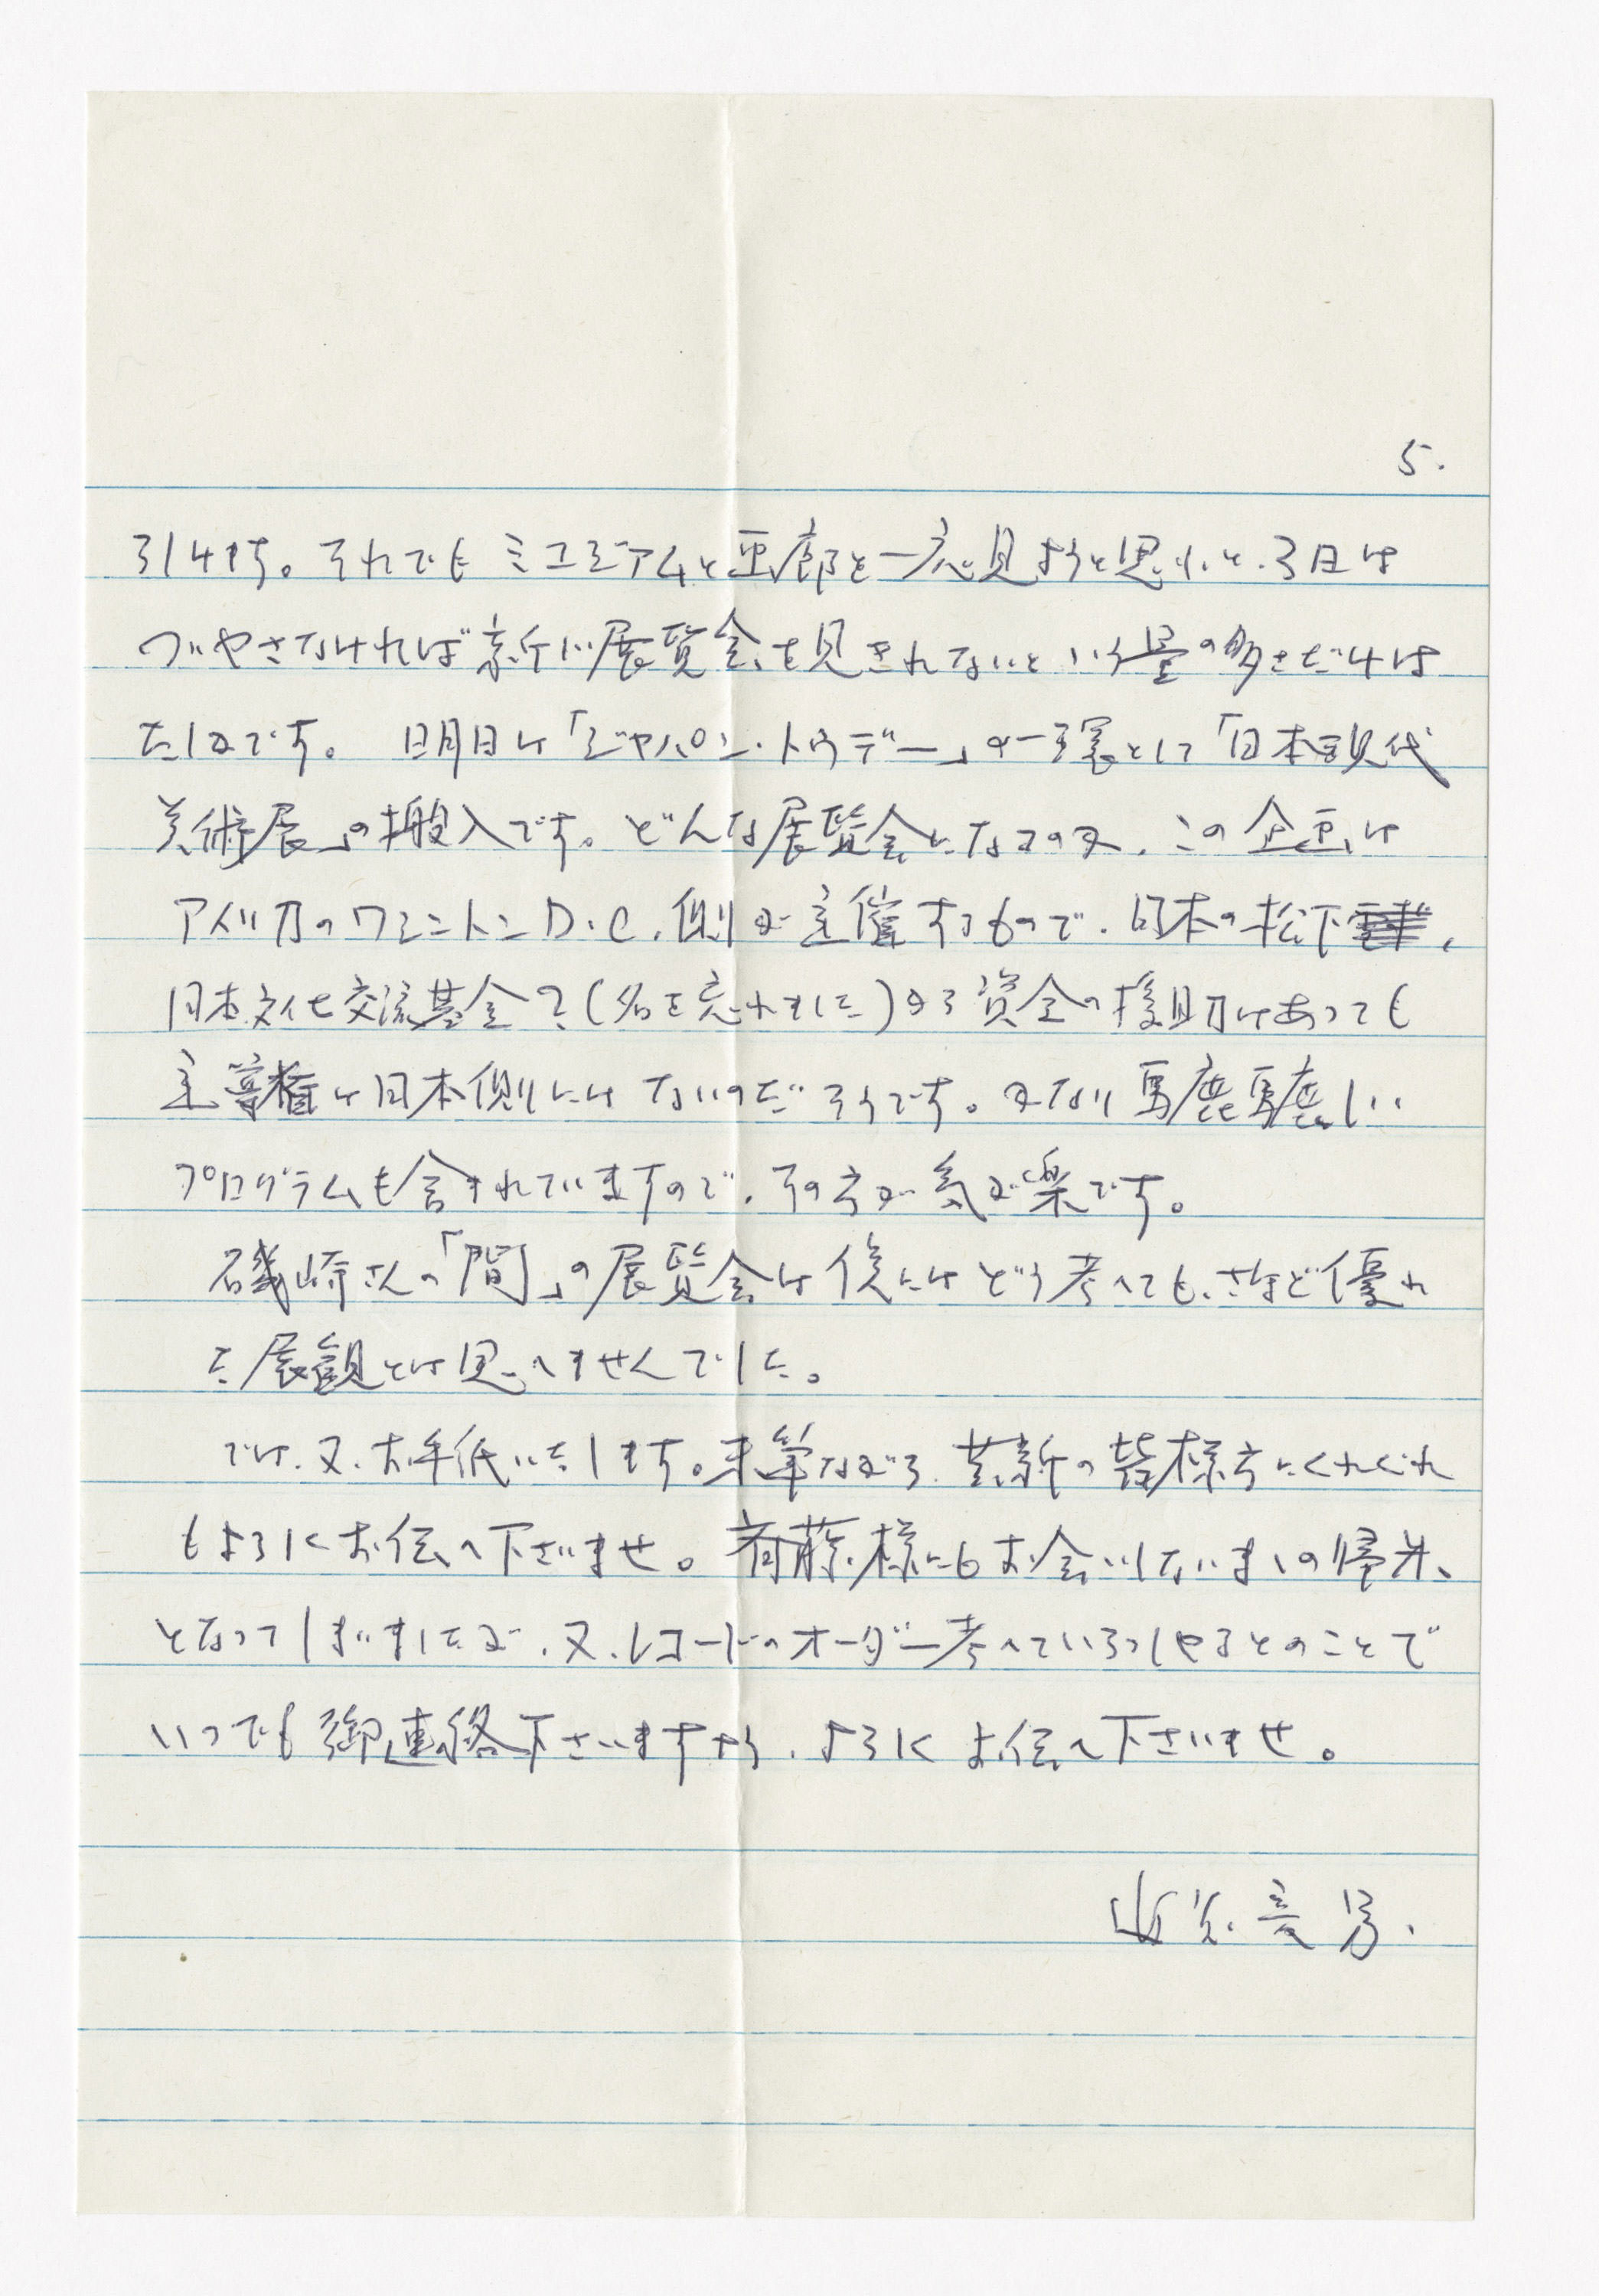 5.
うします。それでも ミユジアムと画廊を一応見ようと思いと、3日は
ついやさなければ新しい展覧会を見きれないという量の多さだけは
たしかです。 明日は「ジャパン・トゥデー」の一環として「日本現代
美術展」の搬入です。どんな展覧会になるのか、この企画は
アメリカのワシントンD.C.側が主催するもので、日本の松下、
日本文化交流基金?(名を忘れました)から資金の援助はあっても
主導権は日本側にはないのだそうです。かなり馬鹿馬鹿しい
プログラムも含まれていますので、その方が気が楽です。
磯崎さんの「間」の展覧会は僕にはどう考へても、さほど優れ
た展観とは思へませんでした。
では、又、お手紙いたします。末筆ながら、芸新の皆様方にくれぐれ
もよろしくお伝へ下さいませ。斉藤様にもお会いしないまゝの帰米、
となってしまいましたが、又、レコードのオーダー考へていらっしやるとのことで
いつでも御連絡下さいますよう、よろしくお伝へ下さいませ。